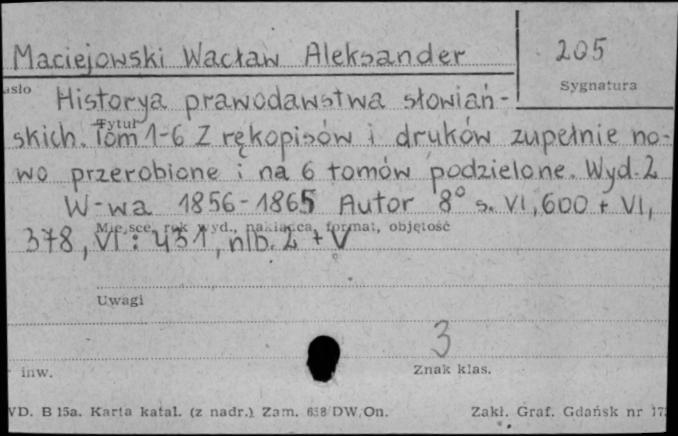 Maciejowski Wacław Aleksander
205
Sygnatura
asło
Historya prawodawstwa słowiań-
Tytuł
skich. Tom 1-6 Z rękopisów i druków zupełnie no-
wo przerobione i na 6 tomów podzielone. Wyd. 2
W-wa 1856-1865 Autor 8° s. VI, 600 + VI,
Miejsce, rok wyd., nakładca, format, objętość
378, VI : 431, nlb. 2 + V
Uwagi
3
inw.
Znak klas.
VD. B 15a. Karta katal. (z nadr.) Zam. 638/DW/On.
Zakł. Graf. Gdańsk nr 17